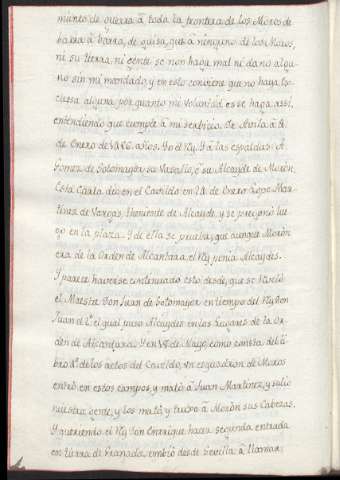 miento de guerra â toda la frontera de los Moros de
barra â barra, de guisa, que â ninguno de los Moros,
ni su tierra, ni gente se non haga mal ni daño algu-
no sin mi mandado, y en esto conviene que no haya es-
cussa alguna, por quanto mi voluntad es se haga assi,
entendiendo que cumple â mi serbicio. de Avila â
de Enero de años. Yo el Rey. Y â las espaldas: A
Gomez de Sotomayor su Vasallo, ê su Alcayde de Morôn.
Esta Carta dio en el Cavildo en de Enero Mar-
tinez de Vargas, theniente de Alcayde, y se pregonô lue-
go en la plaza. Y de ella se prueba, que aunque Morôn
era de la Orden de Alcantara, el Rey ponia Alcaydes.
Y parece haverse continuado esto desde, que se
el Maestre Don Juan de Sotomayor en tiempo del Rey Don
Juan el 2º el qual puso Alcaydes en los lugares de la Or-
den de Alcantara. Y en de Mayo, como consta del li-
bro de los actos del Cavildo, un esquadron de Moros
entrô en estos campos, y matô â Juan Martinez, y saliô
nuestra gente, y los matô, y truxo â Morôn sus Cabezas.
Y queriendo el Rey Don Enrrique hacer segunda entrada
en tierra de Granada, embiô desde Sevilla â llamar,